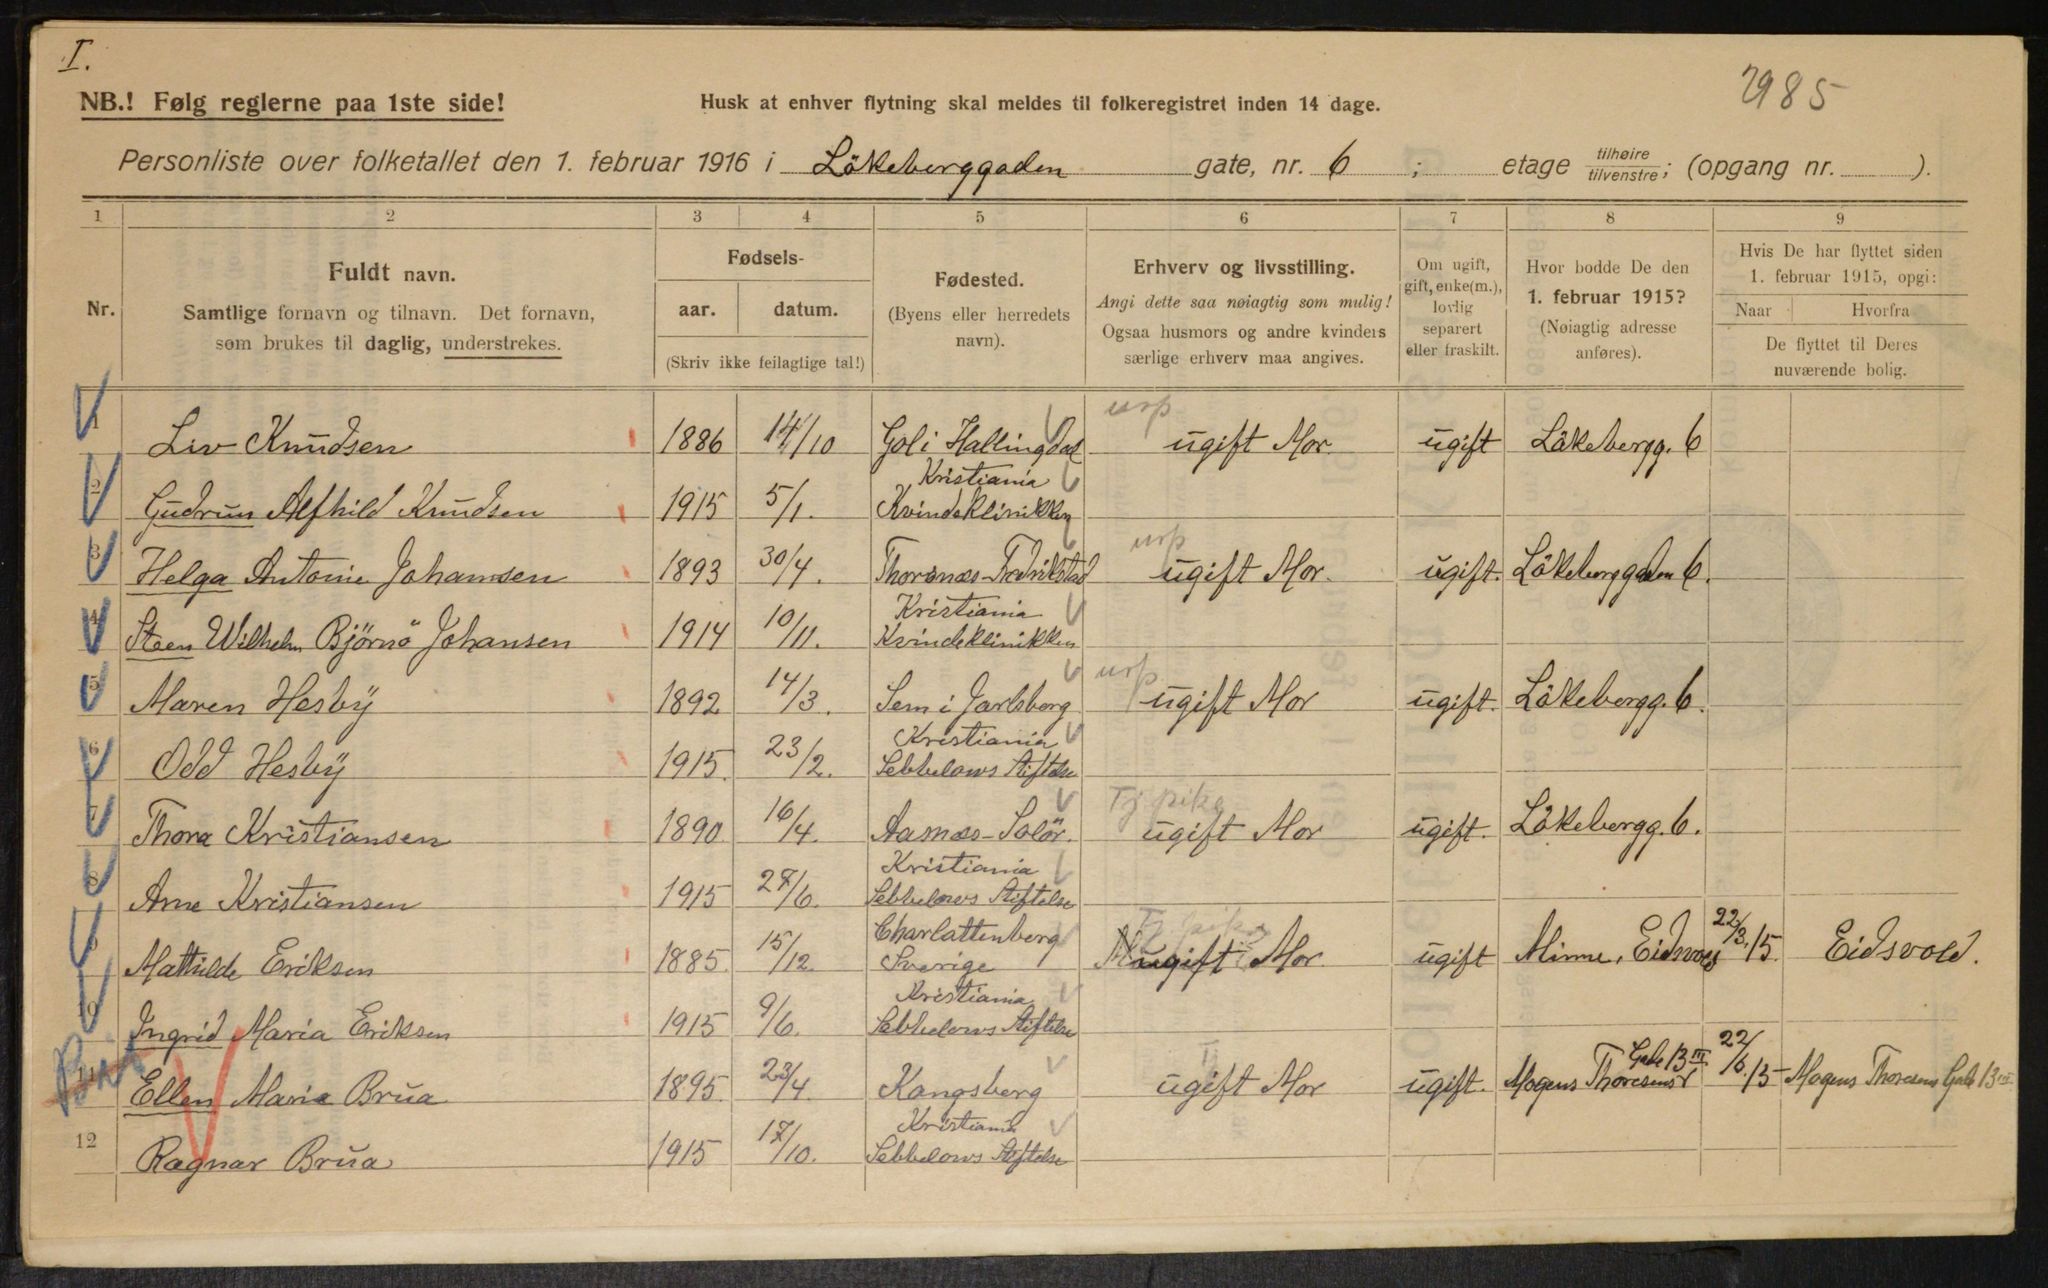 I.
2985
NB.! Følg reglerne paa 1ste side! Husk at enhver flytning skal meldes til folkeregistret inden 14 dage.
Personliste over folketallet den 1. februar 1916 i Lökeberggaden gate, nr. 6 ; etage tilhøire/tilvenstre; (opgang nr. ).
1 2 3 4 5 6 7 8 9
Nr.
Fuldt navn.
Samtlige fornavn og tilnavn. Det fornavn,
som brukes til daglig, understrekes.
Fødsels-
aar. datum.
(Skriv ikke feilagtige tal!)
Fødested.
(Byens eller herredets
navn).
Erhverv og livsstilling.
Angi dette saa nøiagtig som mulig!
Ogsaa husmors og andre kvinders
særlige erhverv maa angives.
Om ugift,
gift, enke(m.),
lovlig
separert
eller fraskilt.
Hvor bodde De den
1. februar 1915?
(Nøiagtig adresse
anføres).
Hvis De har flyttet siden
1. februar 1915, opgi:
Naar Hvorfra
De flyttet til Deres
nuværende bolig.
1 Liv Knudsen 1886 14/10 Gol i Hallingdal ugift Mor ugift Lökebergg. 6
Kristiania
2 Gudrun Alfhild Knudsen 1915 5/1. Kvindeklinikken
3 Helga Antonie Johansen 1893 30/4. Thorsnæs-Fredrikstad ugift Mor. ugift. Lökeberggaden 6.
Kristiania
4 Steen Wilhelm Björnö Johansen 1914 10/11. Kvindeklinikken
5 Maren Hesby 1892 14/3. Sem i Jarlsberg ugift Mor ugift. Lökebergg. 6.
Kristiania
6 Odd Hesby 1915. 23/2. Sebbelows Stiftelse
Tj pike
7 Thora Kristiansen 1890 16/4. Aasnæs-Solör. ugift Mor ugift. Lökebergg. 6.
Kristiania
8 Arne Kristiansen 1915 27/6. Sebbelows Stiftelse
Charlattenberg Tj pike
9 Mathilde Eriksen 1885. 15/12. Sverige ugift Mor. ugift Minne, Eidsvold 22/3.15. Eidsvold.
Kristiania
10 Ingrid Maria Eriksen 1915 9/6. Sebbelows Stiftelse
11 Ellen Marie Brua 1895. 23/4. Kongsberg ugift Mor ugift. Mogens Thoresens Gade 13 III 22/6.15 Mogens Thoresens Gade 13 III
Kristiania
12 Ragnar Brua 1915 17/10. Sebbelows Stiftelse